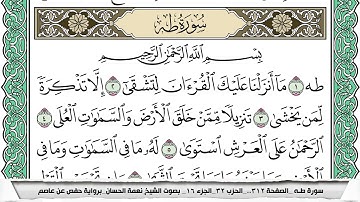 سُورَةُ طه
بِسْمِ ٱللَّهِ ٱلرَّحْمَٰنِ ٱلرَّحِيمِ
طه ١ مَآ أَنزَلْنَا عَلَيْكَ ٱلْقُرْءَانَ لِتَشْقَىٰٓ ٢ إِلَّا تَذْكِرَةً
لِّمَن يَخْشَىٰ ٣ تَنزِيلًا مِّمَّنْ خَلَقَ ٱلْأَرْضَ وَٱلسَّمَٰوَٰتِ ٱلْعُلَى ٤
ٱلرَّحْمَٰنُ عَلَى ٱلْعَرْشِ ٱسْتَوَىٰ ٥ لَهُۥ مَا فِى ٱلسَّمَٰوَٰتِ وَمَا فِى
سورة طـه _الصفحة ٣١٢_ الحزب ٣٢_ الجزء ١٦_ بصوت الشيخ نعمة الحسان_ برواية حفص عن عاصم